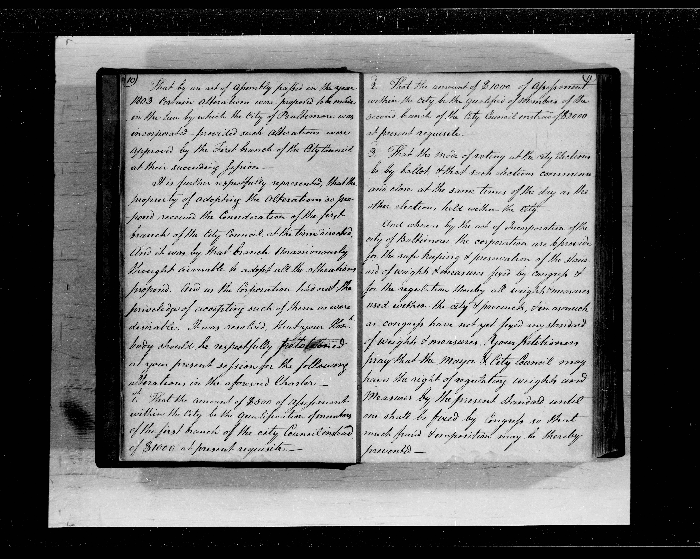 10
That by an act of Assembly passed in the year
1803 Certain Alterations were proposed to be made
in the Law by which the City of Baltimore was
incorporated – provided such Alterations were
approved by the First branch of the City Council
at their succeeding Session –
It is further respectfully represented, that the
propriety of adopting the Alterations so pro-
posed received the Consideration of the first
branch of the City Council, at the time directed,
And it was by that branch Unanimously
thought adviseable to adopt all the alterations
proposed. And as the Corporation has not the
priviledge of accepting such of them as were
desirable. It was resolved, that your Hon.
body should be respectfully petitioned
at your present session for the following
alterations in the aforesaid Charter. –
1. That the amount of $500 of Assessment
within the City be the Qualification of members
of the first branch of the City Council instead
of $1000 at present requisite. –
11
2. That the amount of $1000 of Assessment
within the City be the qualified of Members of the
second branch of the City Council instead of $2000
at present requisite
3. That the mode of voting at the City Elections
be by ballot & that such elections commence
and close at the same times of the day as the
other elections held within the City
And whereas by the act of Incorporation of the
City of Baltimore the corporation are to provide
for the safe keeping & preservation of the stand-
ard of weights & measures fixed by congress &
for the regulation thereby all weights & measures
used within the city & precincts, & in as much
as congress have not yet fixed any standard
of weights & measures. Your petitioners
pray that the Mayor & City Council may
have the right of regulating weights and
Measures by the present standard until
one shall be fixed by Congress so that
much fraud & imposition may be thereby
prevented –